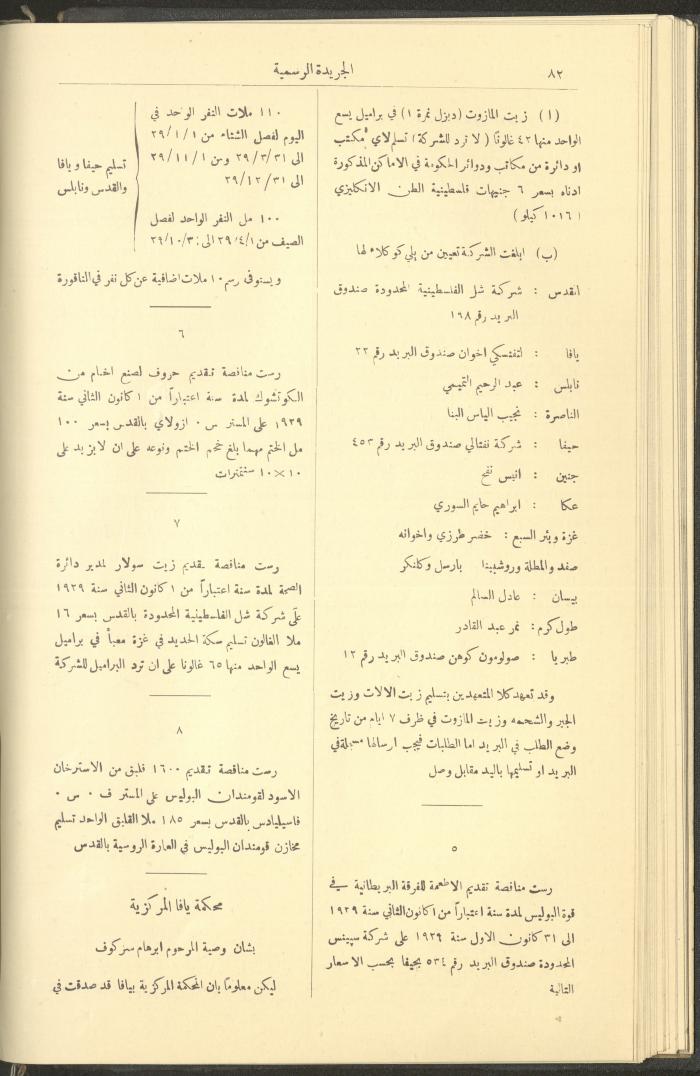 ٨٢
الجريدة الرسمية
(ا) زيت المازوت (ديزل نمرة ١) في براميل يسع
الواحد منها ٤٢ غالونًا (لا ترد للشركة) تسلم لاي مكتب
او دائرة من مكاتب ودوائر الحكومة في الاماكن المذكورة
ادناه بسعر ٦ جنيهات فلسطينية الطن الانكليزي
(١٠١٦ كيلو)
(ب) ابلغت الشركة تعيين من يلي كوكلاء لها
القدس : شركة شل الفلسطينية المحدودة صندوق
البريد رقم ١٦٨
يافا : لتفنسكي اخوان صندوق البريد رقم ٢٢
نابلس : عبد الرحيم التميمي
الناصرة : نجيب الياس البنا
حيفا : شركة نفتالي صندوق البريد رقم ٤٥٣
جنين : انيس نفح
عكا : ابراهيم حايم السوري
غزة وبئر السبع : خضر طرزي واخوانه
صفد والمطلة وروشبينا بارسل وكلنكر
بيسان : عادل السالم
طول كرم : نمر عبد القادر
طبريا : صولومون كوهن صندوق البريد رقم ١٢
وقد تعهد كلا المتعهدين بتسليم زيت الالات وزيت
الجير والشحمه وزيت المازوت في ظرف ٧ ايام من تاريخ
وضع الطلب في البريد اما الطلبات فيجب ارسالها مسجلة في
البريد او تسليمها باليد مقابل وصل
٥
رست مناقصة تقديم الاطعمة للفرقة البريطانية في
قوة البوليس لمدة سنة اعتباراً من ١ كانون الثاني سنة ١٩٢٩
الى ٣١ كانون الاول سنة ١٩٢٩ على شركة سپينس
المحدودة صندوق البريد رقم ٥٣٤ بحيفا بحسب الاسعار
التالية
١١٠ ملات النفر الواحد في
اليوم لفصل الشتاء من ٢٩/١/١
الى ٢٩/٣/٣١ ومن ٢٩/١١/١
الى ٢٩/١٢/٣١
١٠٠ مل النفر الواحد لفصل
الصيف من ٢٩/٤/١ الى ٢٩/١٠/٣
تسليم حيفا ويافا
والقدس ونابلس
ويستوفى رسم ١٠ ملات اضافية عن كل نفر في الناقورة
٦
رست مناقصة تقديم حروف لصنع اختام من
الكوتشوك لمدة سنة اعتباراً من ١ كانون الثاني سنة
١٩٢٩ على المستر س . ازولاي بالقدس بسعر ١٠٠
مل الختم مهما بلغ حجم الختم ونوعه على ان لا يزيد على
١٠×١٠ سنتمترات
٧
رست مناقصة تقديم زيت سولار لمدير دائرة
الصحة لمدة سنة اعتباراً من ١ كانون الثاني سنة ١٩٢٩
على شركة شل الفلسطينية المحدودة بالقدس بسعر ١٦
ملا الغالون تسليم سكة الحديد في غزة معبأ في براميل
يسع الواحد منها ٦٥ غالونا على ان ترد البراميل للشركة
٨
رست مناقصة تقديم ١٦٠٠ قلبق من الاسترخان
الاسود لقومندان البوليس على المستر ف . س .
فاسيليادس بالقدس بسعر ١٨٥ ملا القلبق الواحد تسليم
مخازن قومندان البوليس في العمارة الروسية بالقدس
محكمة يافا المركزية
بشان وصية المرحوم ابرهام سركوف
ليكن معلومًا بان المحكمة المركزية بيافا قد صدقت في